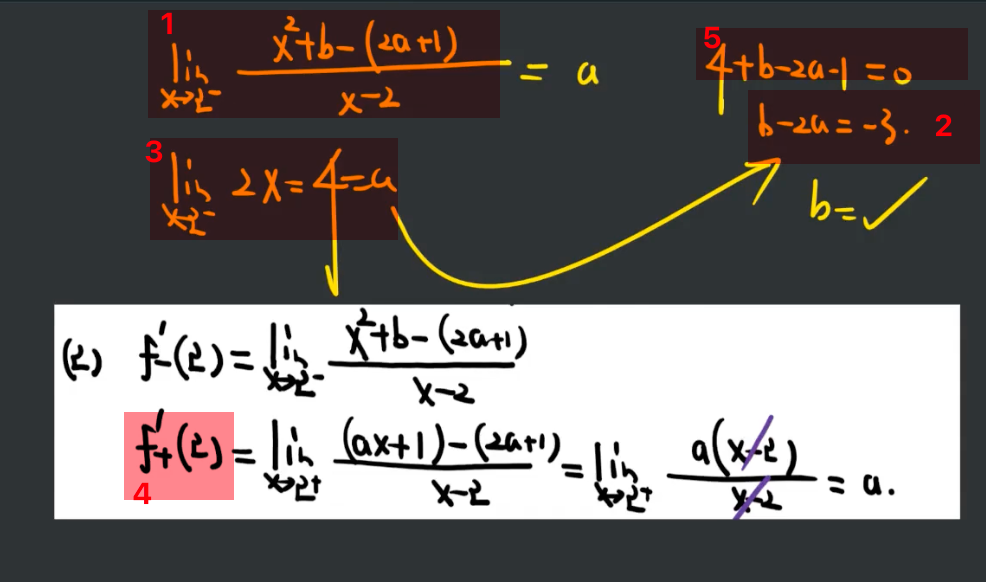 1
lim x→2⁻ (x²+b−(2a+1))/(x−2) = a
5
4+b−2a−1=0
b−2a=−3. 2
3
lim x→2⁻ 2x=4=a
b=✓
(2) f₋′(2)=lim x→2⁻ (x²+b−(2a+1))/(x−2)
f₊′(2)=lim x→2⁺ ((ax+1)−(2a+1))/(x−2)=lim x→2⁺ a(x−2)/(x−2)=a.
4